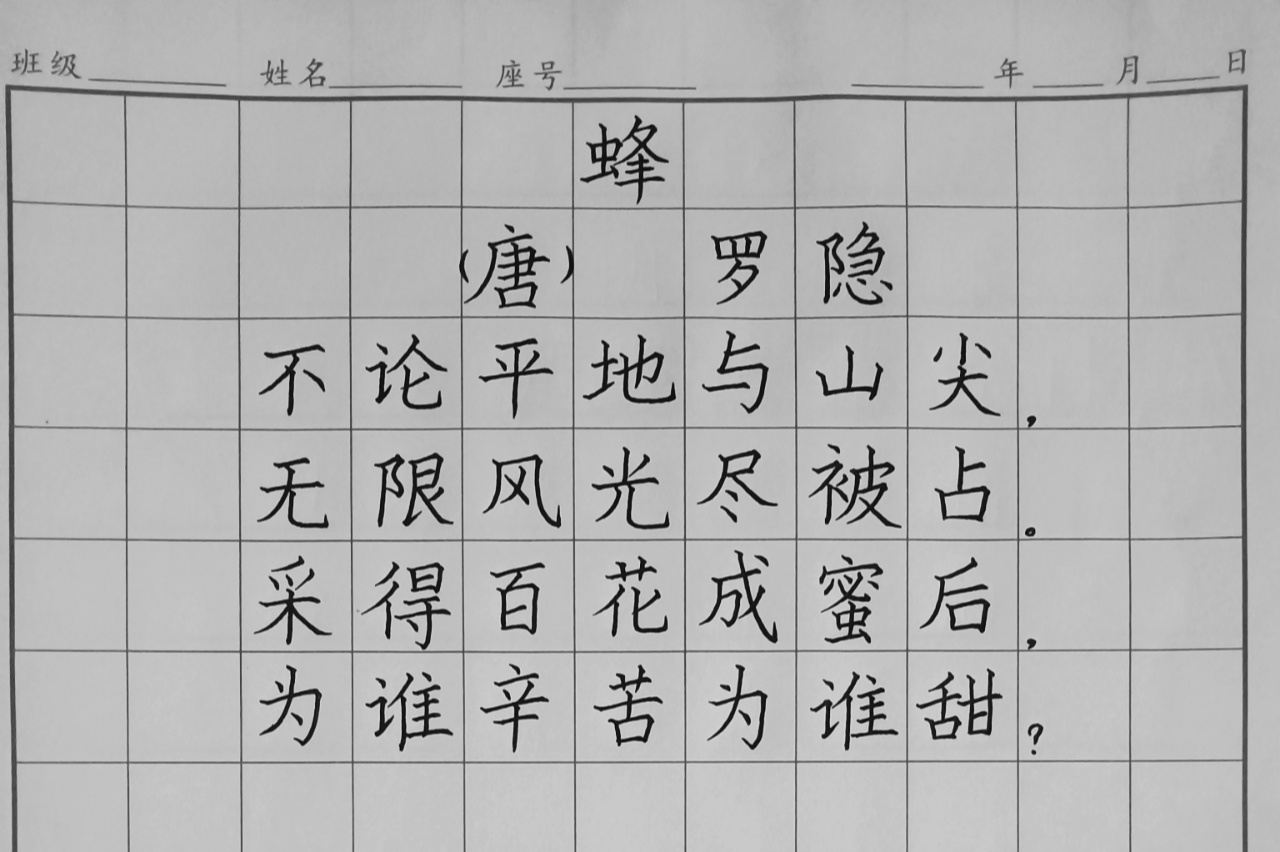 班级 姓名 座号 年 月 日
蜂
(唐) 罗隐
不论平地与山尖,
无限风光尽被占。
采得百花成蜜后,
为谁辛苦为谁甜?